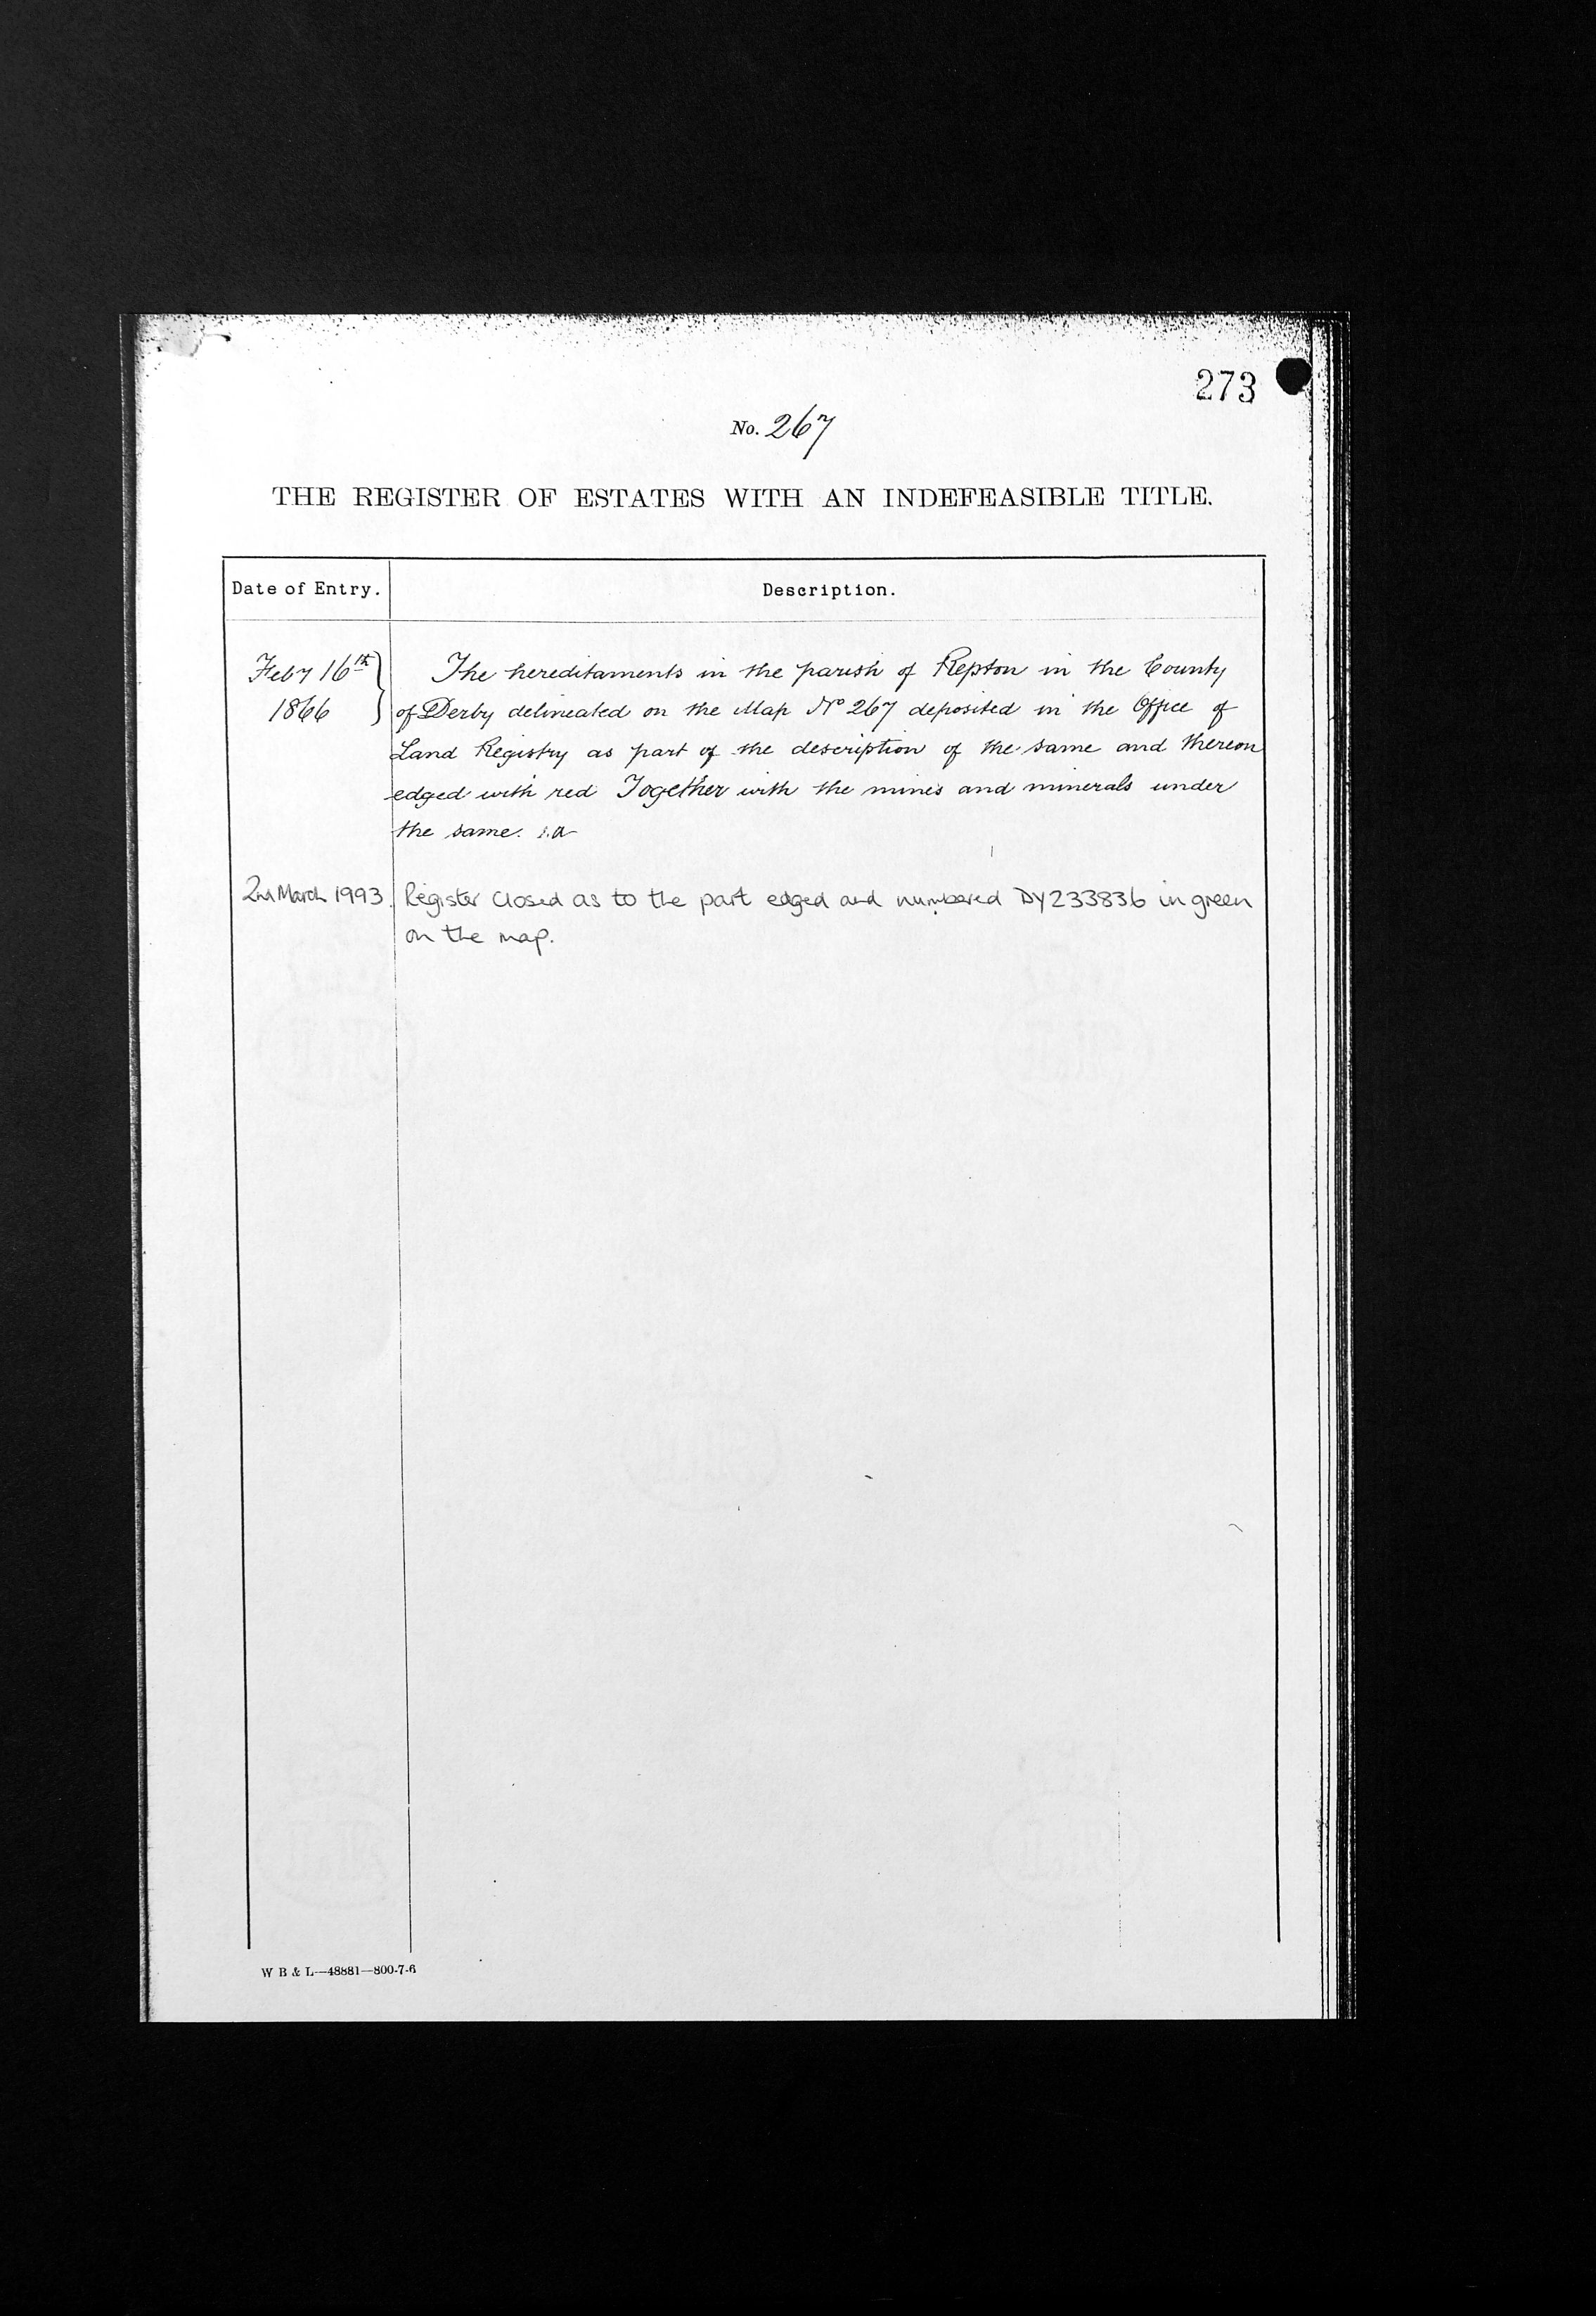 273
No. 267
THE REGISTER OF ESTATES WITH AN INDEFEASIBLE TITLE.
Date of Entry. Description.
Feby 16th The hereditaments in the parish of Repton in the County
1866 of Derby delineated on the Map No 267 deposited in the Office of
Land Registry as part of the description of the same and thereon
edged with red Together with the mines and minerals under
the same.
2nd March 1993. Register closed as to the part edged and numbered DY233836 in green
on the map.
W B & L—48881—800-7-6